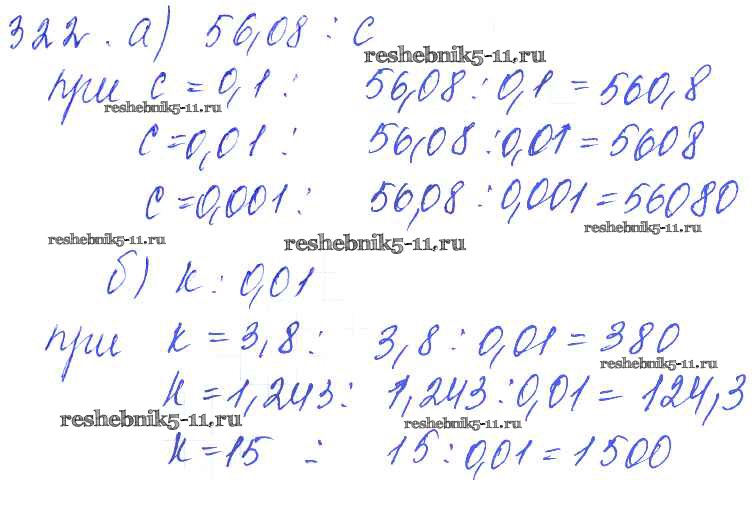 322. а) 56,08 : с
reshebnik5-11.ru
при с = 0,1 : 56,08 : 0,1 = 560,8
reshebnik5-11.ru
с = 0,01 : 56,08 : 0,01 = 5608
с = 0,001 : 56,08 : 0,001 = 56080
reshebnik5-11.ru
reshebnik5-11.ru
reshebnik5-11.ru
б) к : 0,01
при к = 3,8 : 3,8 : 0,01 = 380
reshebnik5-11.ru
к = 1,243 : 1,243 : 0,01 = 124,3
reshebnik5-11.ru
reshebnik5-11.ru
к = 15 : 15 : 0,01 = 1500